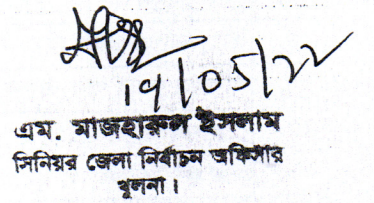 19/05/22
এম. মাজহারুল ইসলাম
সিনিয়র জেলা নির্বাচন অফিসার
খুলনা।